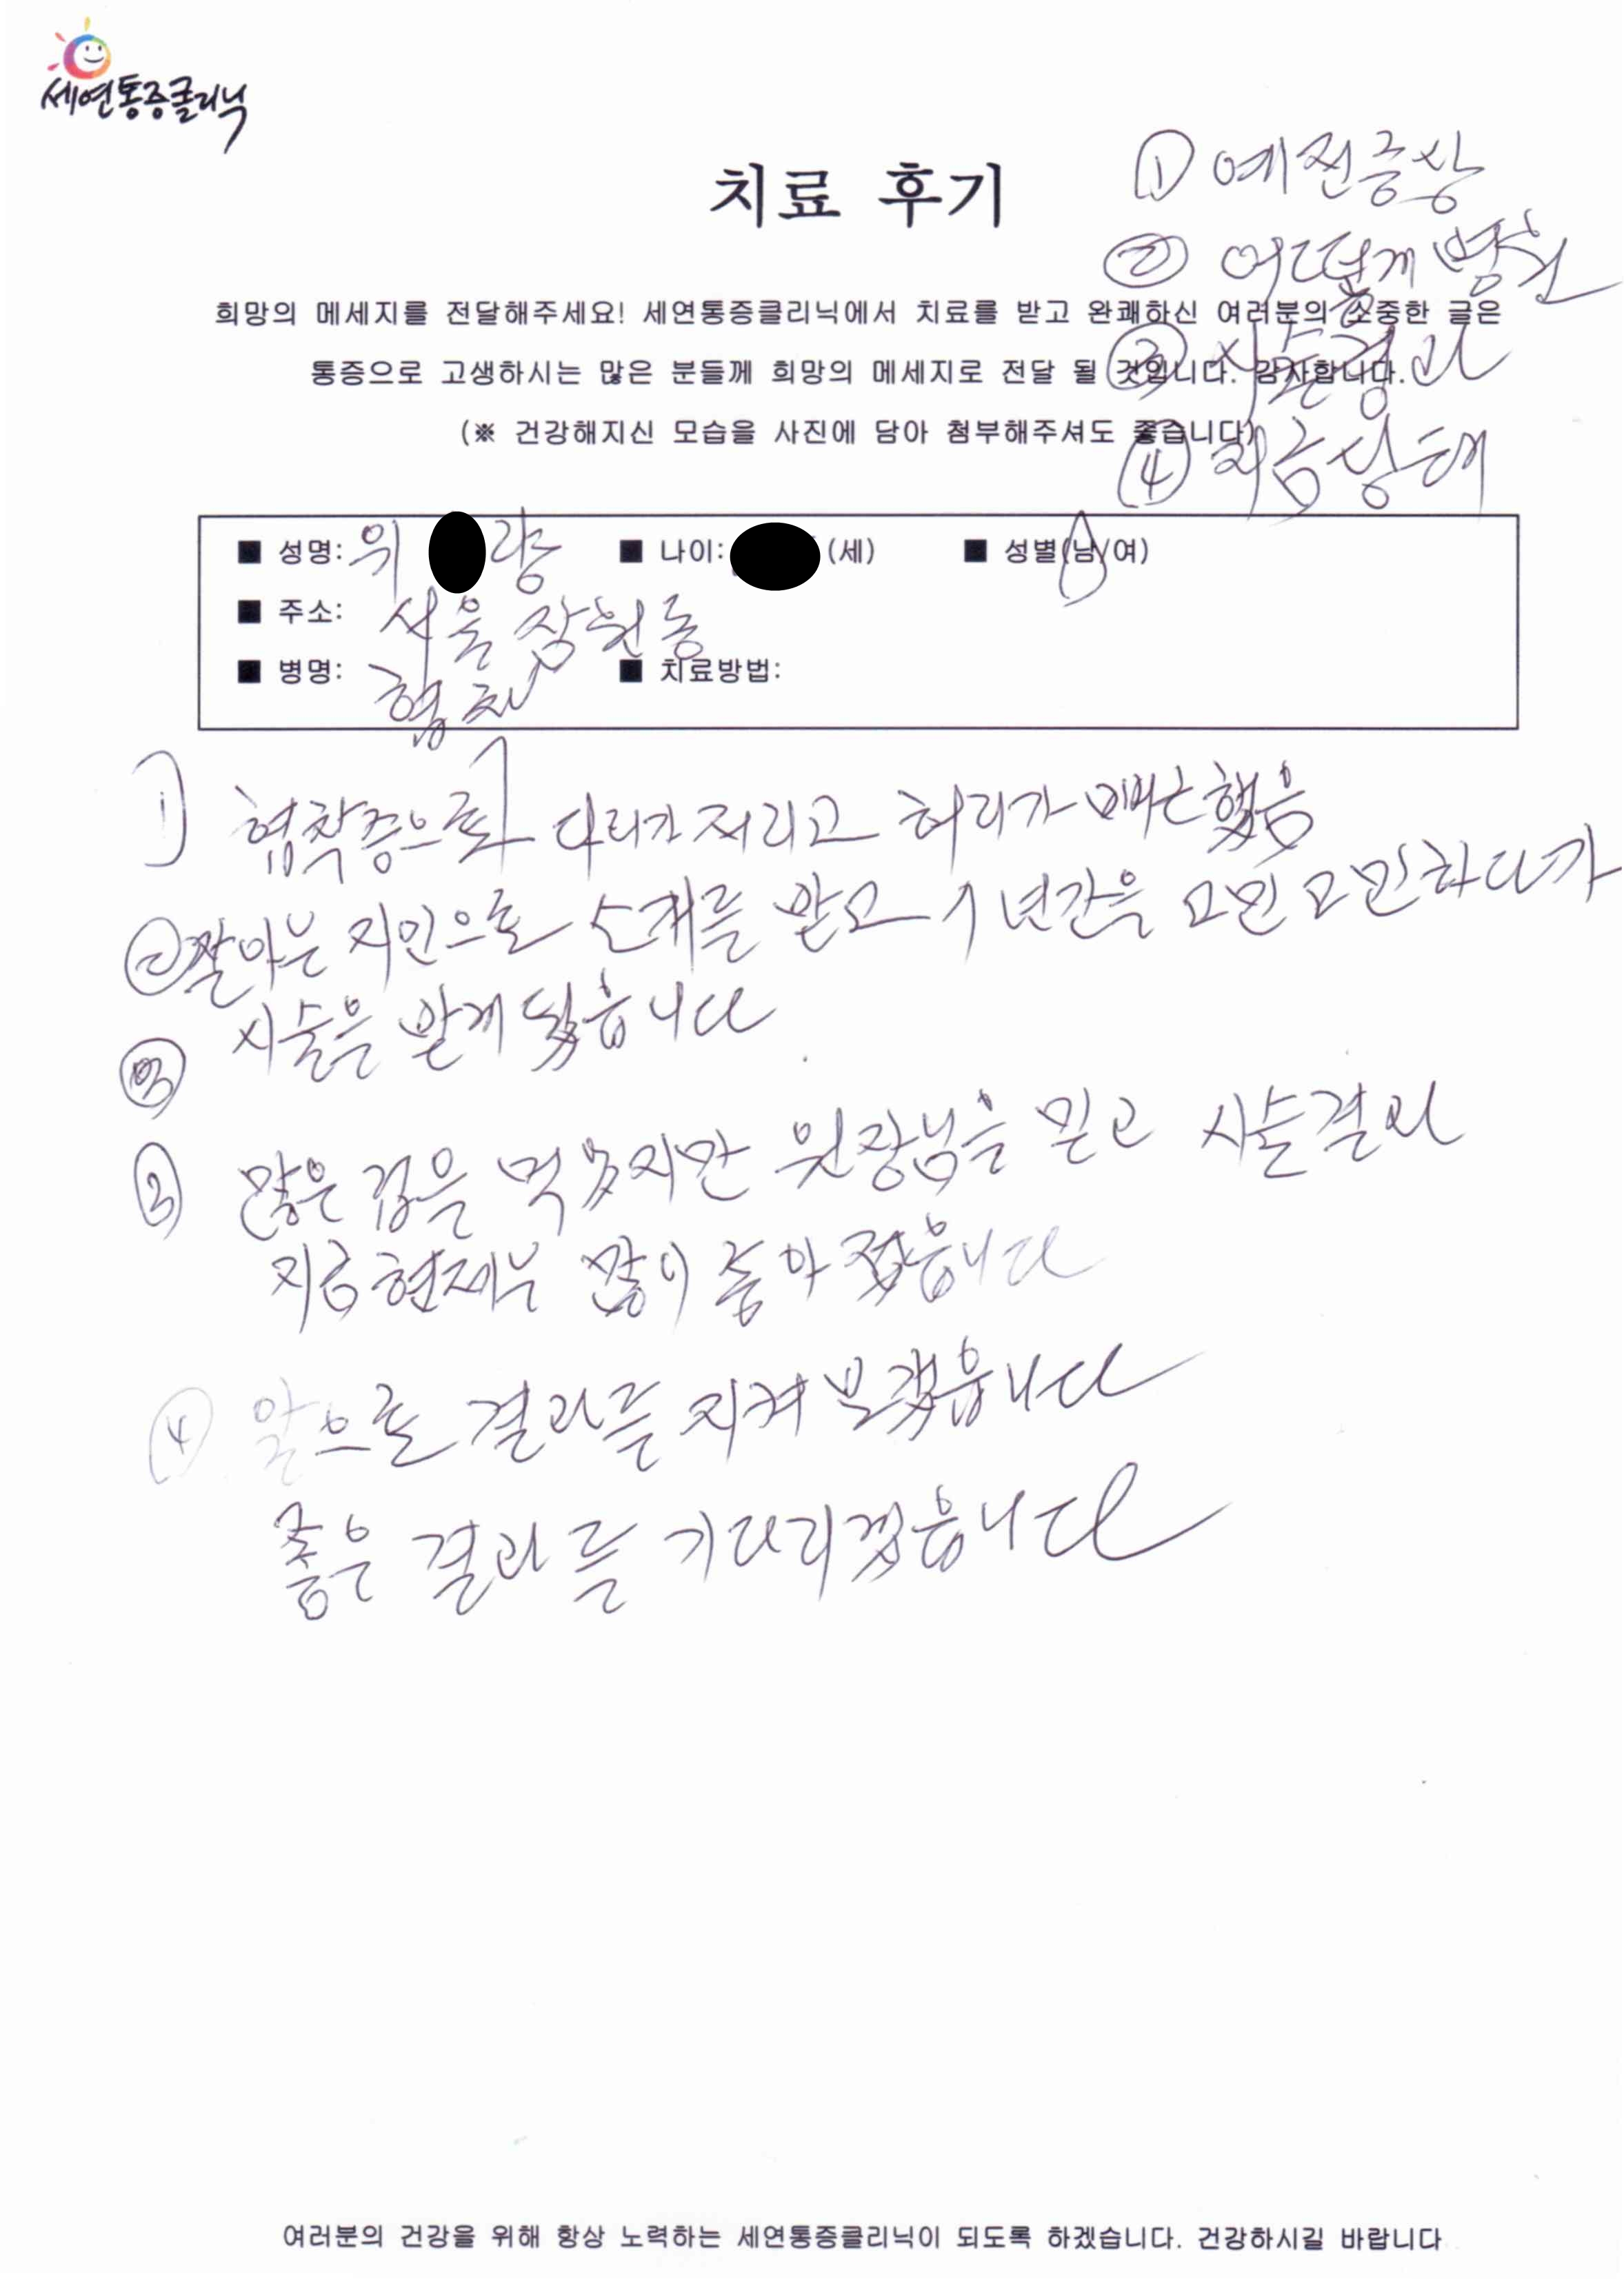 세연통증클리닉
치료 후기
① 예전증상
② 어떻게 병원
③ 시술경과
④ 지금상태
희망의 메세지를 전달해주세요! 세연통증클리닉에서 치료를 받고 완쾌하신 여러분의 소중한 글은
통증으로 고생하시는 많은 분들께 희망의 메세지로 전달 될 것입니다. 감사합니다.
(※ 건강해지신 모습을 사진에 담아 첨부해주셔도 좋습니다)
■ 성명: 위 량 ■ 나이: (세) ■ 성별(남/여)
■ 주소: 서울 잠원동
■ 병명: 협착 ■ 치료방법:
1) 협착증으로 다리가 저리고 허리가 했음
② 잘아는 지인으로 소개를 받고 1년간을 고민고민하다가
시술은 받게 됬읍니다
③
③ 많은 겁은 먹었지만 원장님을 믿고 시술결과
지금현재는 많이 좋아 졌읍니다
④ 앞으로 결과를 지켜 보겠읍니다
좋은 결과를 기다리겠읍니다
여러분의 건강을 위해 항상 노력하는 세연통증클리닉이 되도록 하겠습니다. 건강하시길 바랍니다